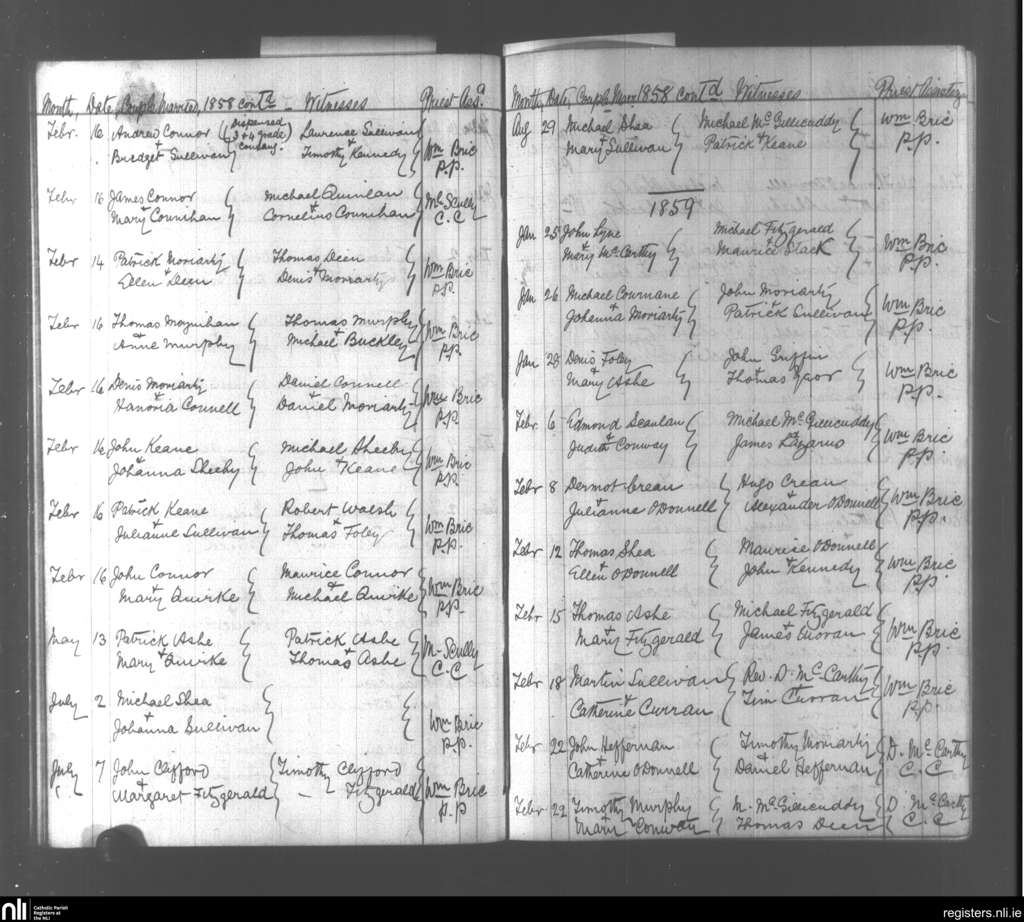 Month, Date, Couple Married, 1858 contd — Witnesses Priest Ass.g
Febr. 16 Andrew Connor (Dispensed 3 & 4 grade consang.) Lawrence Sullivan
" Bridget Sullivan & Timothy Kennedy Wm Bric
P.P.
Febr 16 James Connor Michael Quinlan
& Mary Counihan Cornelius Counihan M. Scully
C.C
Febr 14 Patrick Moriarty Thomas Deen
& Ellen Deen Denis Moriarty Wm Bric
P.P.
Febr 16 Thomas Moynihan Thomas Murphy
& Anne Murphy & Michael Buckley Wm Bric
P.P.
Febr 16 Denis Moriarty Daniel Connell
& Hanoria Connell & Daniel Moriarty Wm Bric
P.P.
Febr 16 John Keane Michael Sheehy
& Johanna Sheehy John & Keane Wm Bric
P.P.
Febr 16 Patrick Keane Robert Walsh
& Julianne Sullivan & Thomas Foley Wm Bric
P.P.
Febr 16 John Connor Maurice Connor
& Mary Quirke & Michael Quirke Wm Bric
P.P.
May 13 Patrick Ashe Patrick Ashe
Mary & Quirke & Thomas Ashe M. Scully
C.C
July 2 Michael Shea
& Johanna Sullivan Wm Bric
P.P.
July 7 John Clifford Timothy Clifford
& Margaret Fitzgerald — Fitzgerald Wm Bric
P.P
Month, Date, Couple Marr 1858 contd Witnesses Priest
Aug 29 Michael Shea Michael McGillicuddy Wm Bric
& Mary Sullivan Patrick & Keane P.P.
1859
Jan 25 John Lyne Michael Fitzgerald
& Mary McCarthy & Maurice Slack Wm Bric
P.P.
Jan 26 Michael Cournane John Moriarty
& Johanna Moriarty & Patrick Sullivan Wm Bric
P.P.
Jan 28 Denis Foley John Griffin
& Mary Ashe & Thomas Wm Bric
P.P.
Febr. 6 Edmond Scanlan Michael McGillicuddy
& Judith Conway & James Lazarus Wm Bric
P.P.
Febr 8 Dermot Crean Hugo Crean
Julianne O'Donnell & Alexander O'Donnell Wm Bric
P.P.
Febr 12 Thomas Shea Maurice O'Donnell
& Ellen O'Donnell John & Kennedy Wm Bric
P.P.
Febr 15 Thomas Ashe Michael Fitzgerald
& Mary Fitzgerald & James Moran Wm Bric
P.P.
Febr 18 Martin Sullivan Rev. D. McCarthy
& Catherine Curran & Tim Curran Wm Bric
P.P.
Febr 22 John Heffernan Timothy Moriarty D. McCarthy
& Catherine O'Donnell & Daniel Heffernan C.C
Febr 22 Timothy Murphy M. McGillicuddy D McCarthy
& Mary Conway & Thomas Deen C.C
nli Catholic Parish
Registers at
the NLI
registers.nli.ie